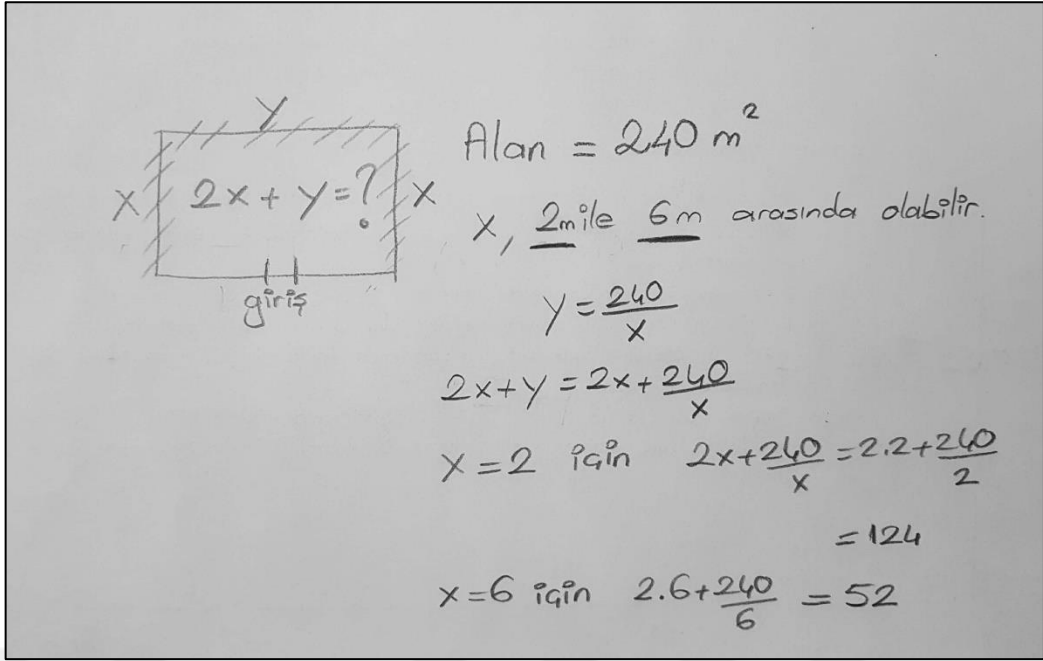 Y
X 2x + y = ? X
giriş
Alan = 240 m²
X, 2m ile 6m arasında olabilir.
y = 240/x
2x+y = 2x+240/x
x = 2 için 2x+240/x = 2.2+240/2
= 124
x=6 için 2.6+240/6 = 52